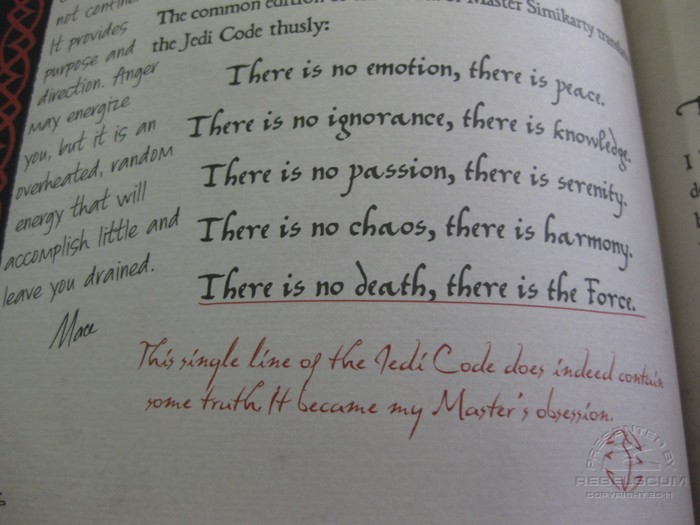 not contin
It provides
purpose and
direction. Anger
may energize
you, but it is an
overheated, random
energy that will
accomplish little and
leave you drained.
Mace
The common edition of Master Simikarty
the Jedi Code thusly:
There is no emotion, there is peace.
There is no ignorance, there is knowledge.
There is no passion, there is serenity.
There is no chaos, there is harmony.
There is no death, there is the Force.
This single line of the Jedi Code does indeed contain
some truth. It became my Master's obsession.
I
PRESENTED BY
REBELSCUM
COPYRIGHT 2011